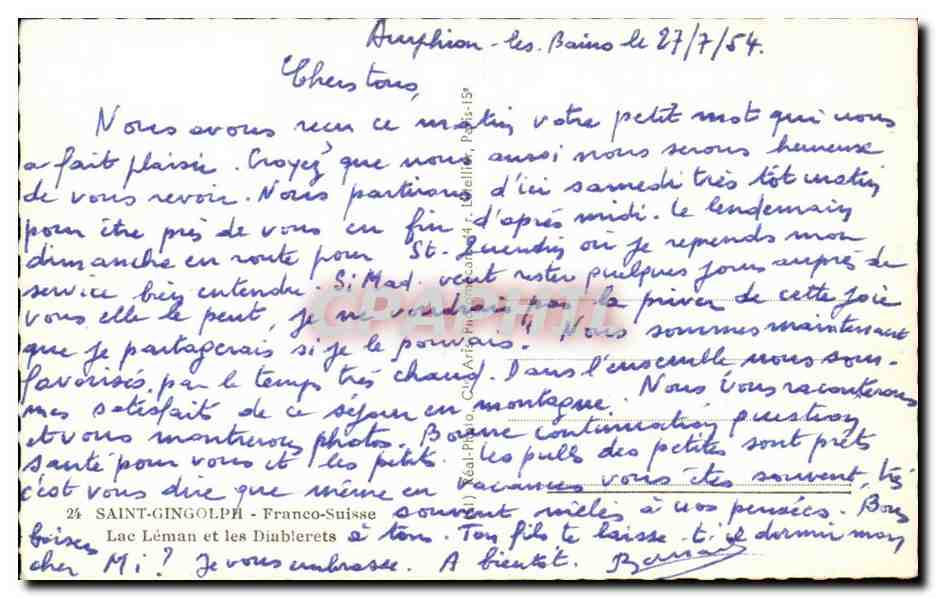 Amphion-les-Bains le 27/7/54.
Chers tous,
Nous avons reçu ce matin votre petit mot qui nous
a fait plaisir. Croyez que nous aussi nous serons heureux
de vous revoir. Nous partirons d'ici samedi très tôt matin
pour être près de vous en fin d'après midi. Le lendemain
dimanche en route pour St-Quentin où je reprends mon
service bien entendu. Si Mad. veut rester quelques jours auprès de
vous elle le peut, je ne voudrais pas la priver de cette joie
que je partagerais si je le pouvais! Nous sommes maintenant
favorisés par le temps très chaud. Dans l'ensemble nous som-
mes satisfait de ce séjour en montagne. Nous vous raconterons
et vous montrerons photos. Bonne continuation question
santé pour vous et les petits. Les pulls des petites sont prêts
c'est vous dire que même en vacances vous êtes souvent, très
24 SAINT-GINGOLPH - Franco-Suisse souvent mêlés à nos pensées. Bons
Lac Léman et les Diablerets
baisers à tous. Ton fils te laisse-t-il dormir mon
cher Mi? Je vous embrasse. A bientôt. Bernard
Réal-Photo, Cie Arts Photomécan. 44 r. Letellier, Paris-15e
CPAPHIL